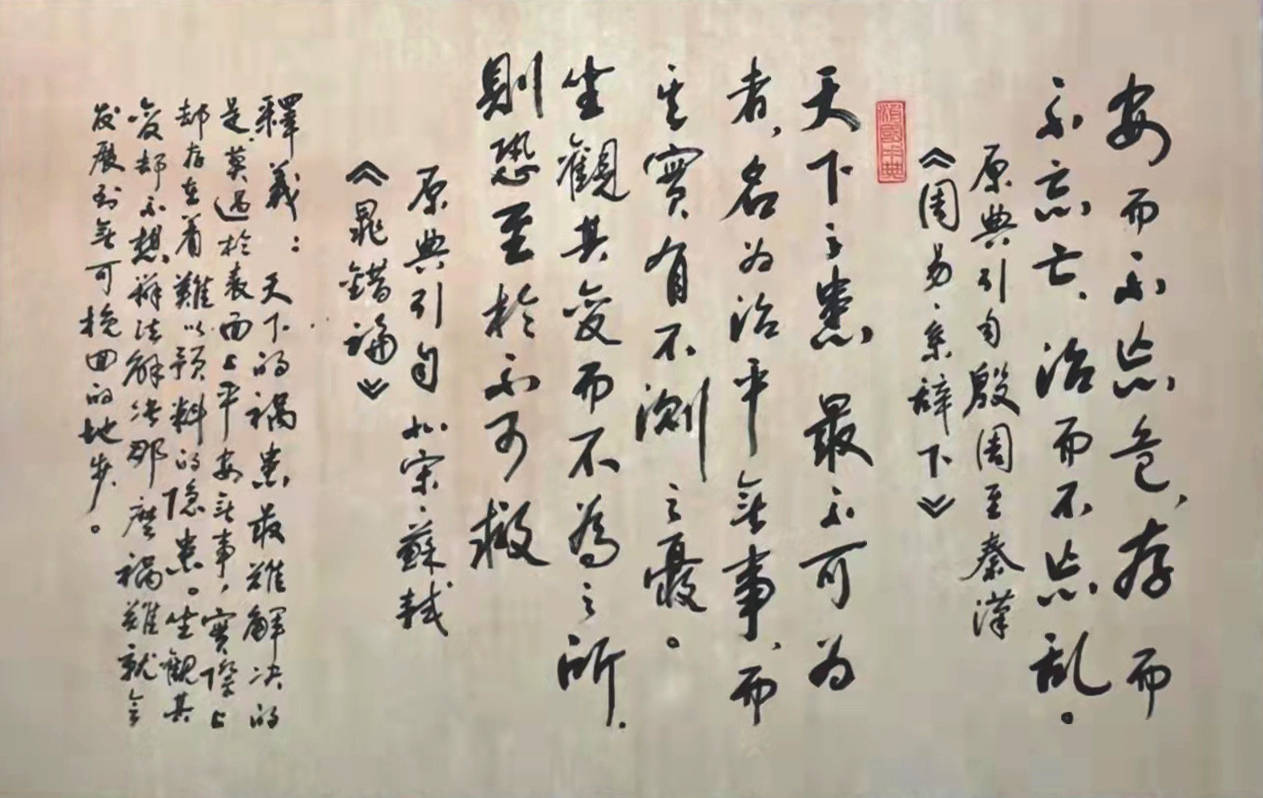 安而不忘危、存而
不忘亡、治而不忘乱。
原典引自殷周至秦漢
《周易·系辞下》
天下之患,最不可为
者,名为治平無事,而
其實有不測之憂。
坐觀其变而不為之所.
則恐至於不可救
原典引自北宋·蘇軾
《晁錯論》
釋義:天下的禍患,最难解决的
是,莫過於表面上平安無事,實際上
却存在着難以預料的隐患。坐觀其
变却不想辦法解决那麽禍難就会
发展到無可挽回的地步。